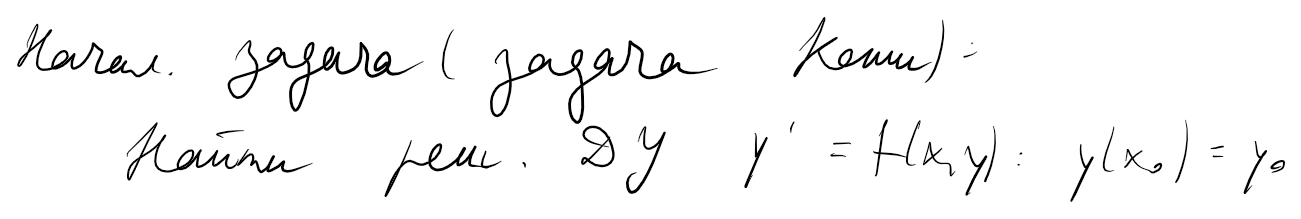 Начал. задача (задача Коши):
Найти реш. ДУ y' = f(x,y): y(x₀) = y₀